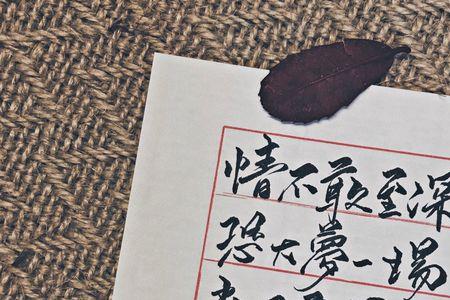 情不敢至深
恐大夢一場